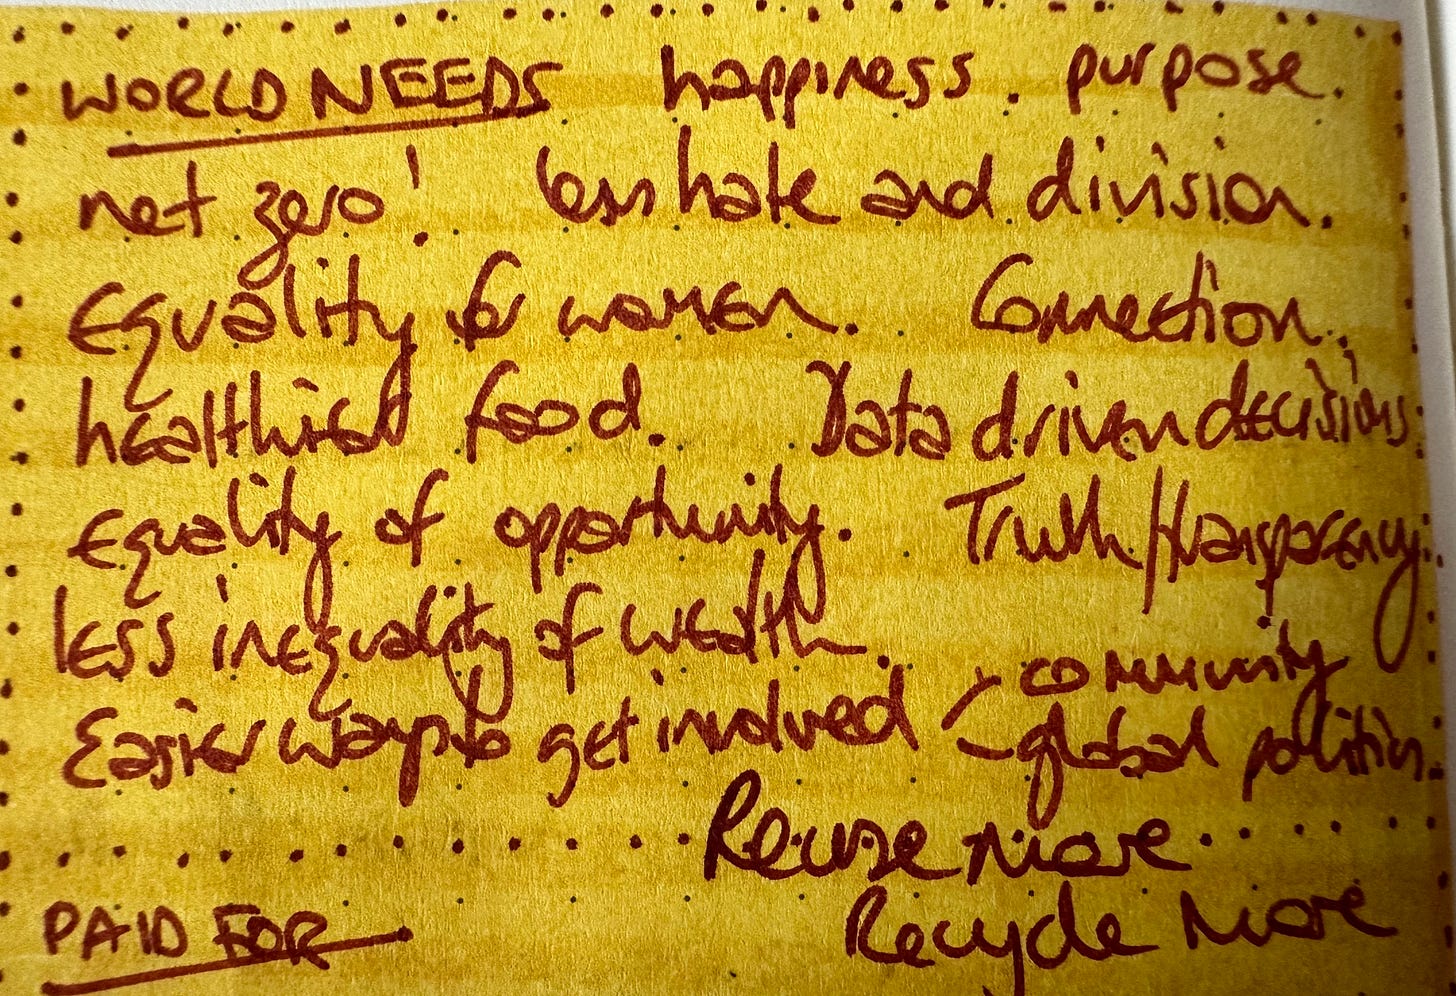 WORLD NEEDS happiness. purpose.
net zero! less hate and division.
Equality for women. Connection.
healthier food. Data driven decisions.
Equality of opportunity. Truth/transparency.
Less inequality of wealth.
Easier ways to get involved - community
- global politics.
Reuse more.
PAID FOR Recycle more